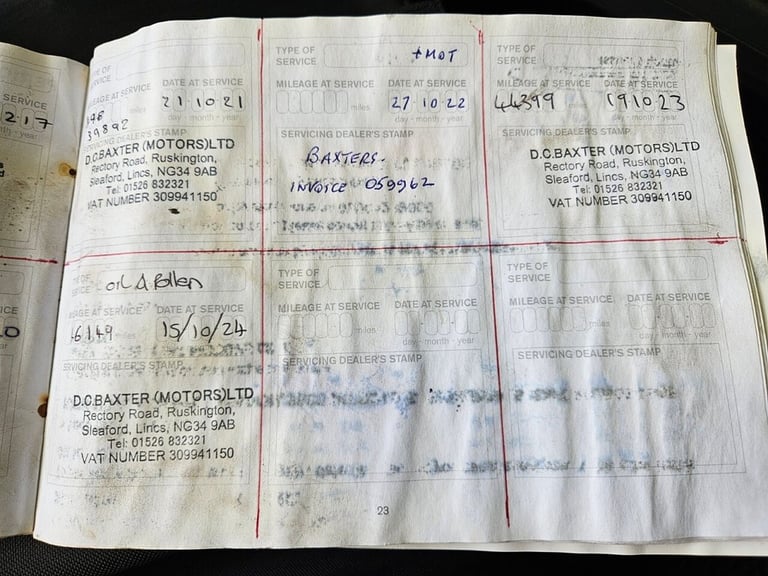 SERVICE
217
month - year
TYPE OF
SERVICE
MILEAGE AT SERVICE
DATE AT SERVICE
39892
21-10-21
day - month - year
SERVICING DEALER'S STAMP
D.C.BAXTER (MOTORS)LTD
Rectory Road, Ruskington,
Sleaford, Lincs, NG34 9AB
Tel: 01526 832321
VAT NUMBER 309941150
TYPE OF
SERVICE
+MOT
MILEAGE AT SERVICE
DATE AT SERVICE
miles
27-10-22
day - month - year
SERVICING DEALER'S STAMP
BAXTERS.
INVOICE 059962
TYPE OF
SERVICE
MILEAGE AT SERVICE
DATE AT SERVICE
44399
191023
day - month - year
SERVICING DEALER'S STAMP
D.C.BAXTER (MOTORS)LTD
Rectory Road, Ruskington,
Sleaford, Lincs, NG34 9AB
Tel: 01526 832321
VAT NUMBER 309941150
OIL & Pollen
MILEAGE AT SERVICE
DATE AT SERVICE
46149
15/10/24
SERVICING DEALER'S STAMP
D.C.BAXTER (MOTORS)LTD
Rectory Road, Ruskington,
Sleaford, Lincs, NG34 9AB
Tel: 01526 832321
VAT NUMBER 309941150
TYPE OF
SERVICE
MILEAGE AT SERVICE
DATE AT SERVICE
miles
day - month - year
SERVICING DEALER'S STAMP
TYPE OF
SERVICE
MILEAGE AT SERVICE
DATE AT SERVICE
miles
day - month - year
SERVICING DEALER'S STAMP
23